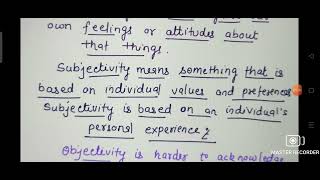 own feelings or attitudes about
that things.
Subjectivity means something that is
based on individual values and preferences
Subjectivity is based on an individual's
personal experience
Objectivity is harder to acknowledge
MASTER RECORDER